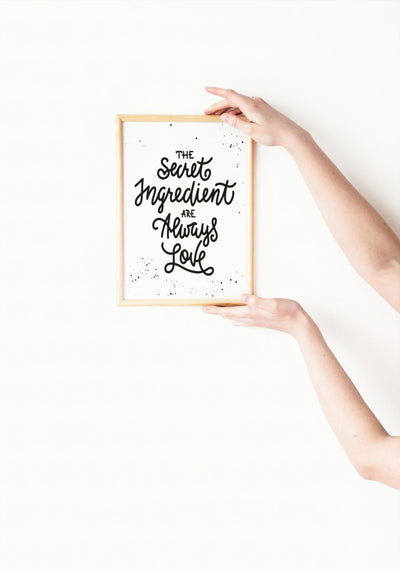 THE
Secret
Ingredient
ARE
Always
Love